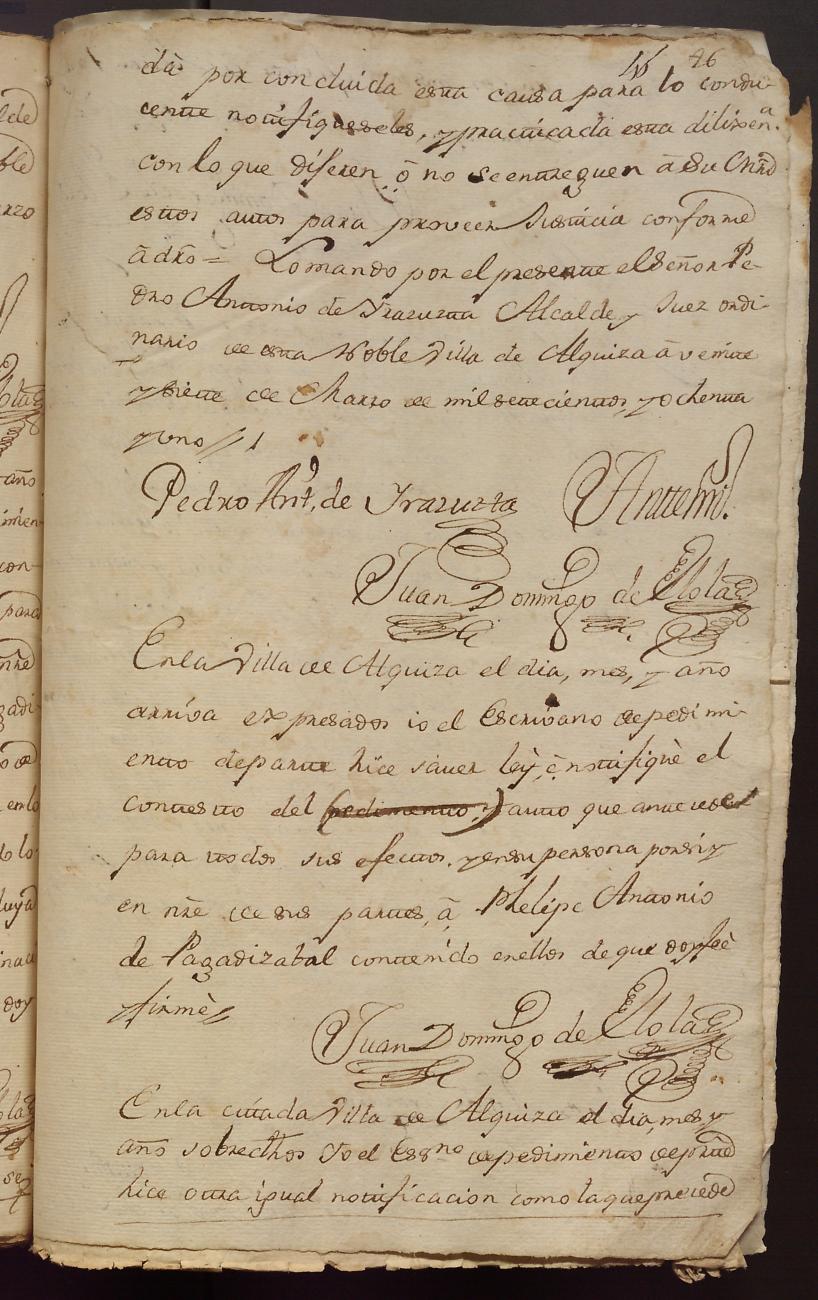 46 46
da por concluida esta causa para lo condu-
cente notifiqueseles, y practicada esta dilixenª.
con lo que diseren, ō no se entreguen â su Mrd
estos autos para proveer Justicia conforme
â dro = Lo mando por el presente el Señor Pe-
dro Antonio de Yrazuzta Alcalde, y Juez ordi-
nario de esta Noble Villa de Alquiza â veinte
y siete de Marzo de mil setecientos, y ochenta
y uno //
Pedro Antº. de Yrazuzta Anttemi.
Juan Domingo de Elola
En la Villa de Alquiza el dia, mes, y año
arriva expresados io el Escrivano de pedimi-
ento de parte hice saver ley, è notifiquè el
contesto del (pedimento) auto que antecede
para todos sus efectos, y en su persona por si y
en nre de sus partes, â Phelipe Antonio
de Pagadizabal contenido en ellos de que doy feè
y firmè
Juan Domingo de Elola
En la citada Villa de Alquiza el dia, mes y
año sobredhos Yo el Essno de pedimiento de parte
hice otra igual notificacion como la que precede